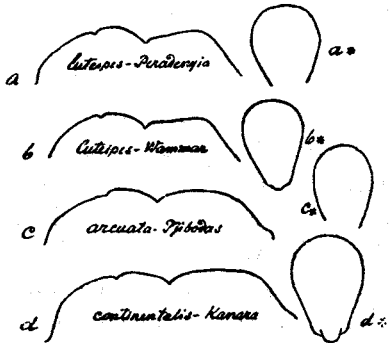 a luteipes-Peradenyia a*
b luteipes-Wammar b*
c arcuata-Tjibodas c*
d continentalis-Kanara d*